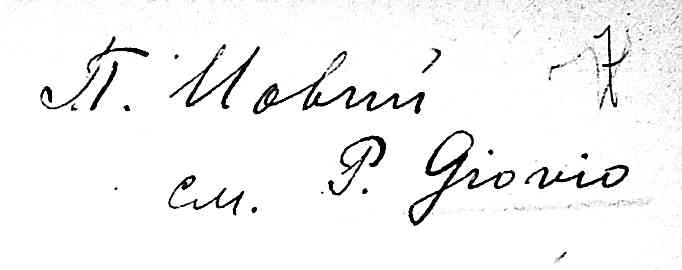 П. Иовий
см. P. Giovio